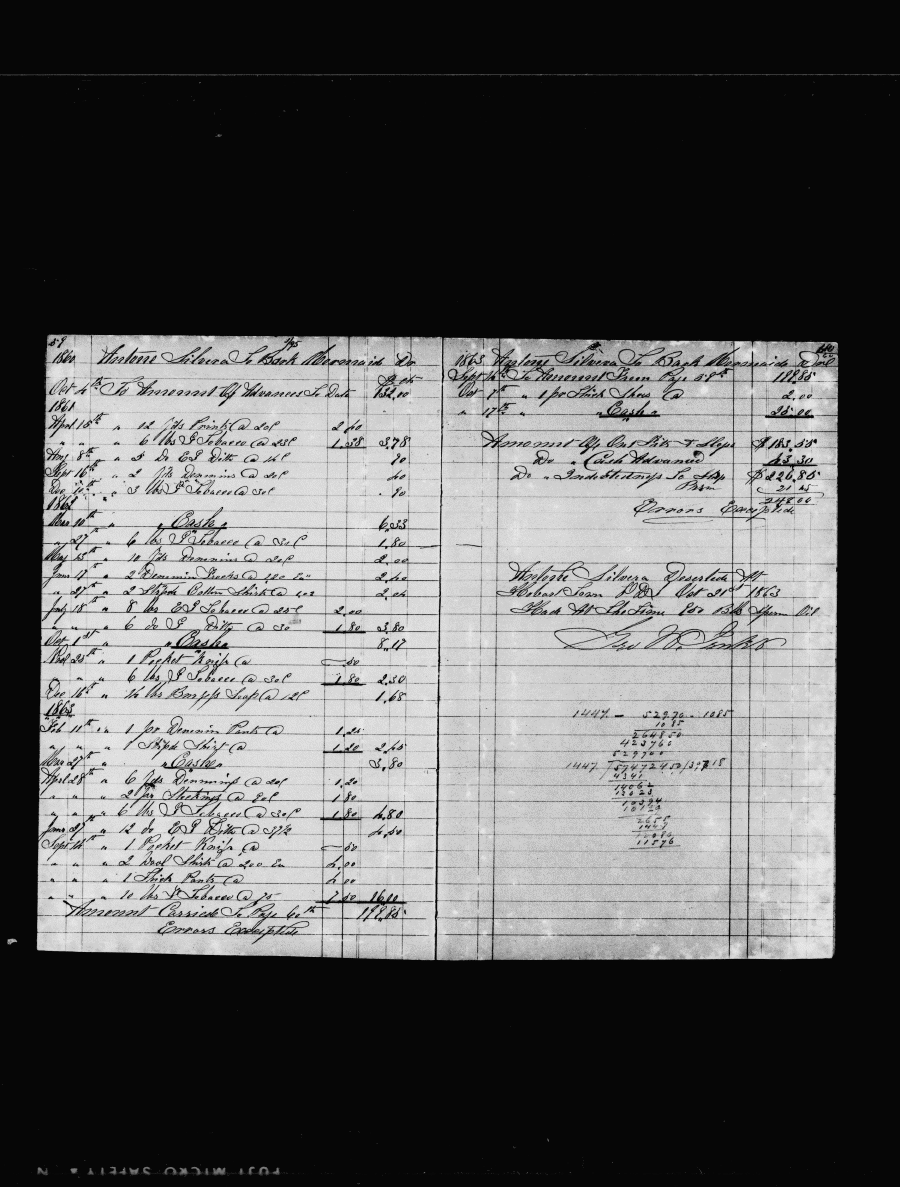 59
1/95
1860 Antone Silvera To Bark Mermaid Dr
$ cts
Oct 4th To Amount Of Advances To Date 132.00
1861
April 15th " 12 yds Print @ 20c 2.40
" " " 6 lbs T Tobacco @ 23c 1.38 3.78
Aug 8th " 5 Do E T Ditto @ 18c .90
Sept 16th " 2 yds Dennim @ 20c .40
Dec 10th " 3 lbs T Tobacco @ 30c .90
1862
Mar 10th " " Cash " 6.33
" 27th " 6 lbs T Tobacco @ 30c 1.80
May 15th " 10 yds Dennim @ 20c 2.00
June 17th " 2 Dennim Frocks @ 1.20 Ea 2.40
" 27th " 2 Stripd Cotton Shirts @ 102 2.04
July 18th " 8 lbs E T Tobacco @ 25c 2.00
" " " 6 do T Ditto @ 30 1.80 3.80
Oct 1st " " Cash " 8.17
Nov 25th " 1 Pocket Knife @ .50
" " " 6 lbs T Tobacco @ 30c 1.80 2.30
Dec 16th " 14 lbs Soap @ 12c 1.68
1863
Feb 11th " 1 pr Dennim Pants @ 1.25
" " " 1 Stripd Shirt @ 1.20 2.45
Mar 27th " " Cash " 3.80
April 28th " 6 yds Dennims @ 20c 1.20
" " " 2 pr Stockings @ 90c 1.80
" " " 6 lbs T Tobacco @ 30c 1.80 4.80
June 27th " 12 do E T Ditto @ 37½ 4.50
Sept 14th " 1 Pocket Knife @ .50
" " " 2 Wool Shirts @ 200 Ea 4.00
" " " 1 Thick Pants @ 4.00
" " " 10 lbs T Tobacco @ 75 7.50 16.00
Amount Carried To Page 60th 199.85
Errors Excepted
1863 Antone Silvera To Bark Mermaid Dr
Sept 14th To Amount From Page 59th 199.85
Oct 7th " 1 pr Thick Shoes @ 2.00
" 17th " " Cash " 25.00
Amount Of Outfits & Slops $183.55
Do " Cash Advanced 43.30
Do " Indebtedness To Ship $226.85
Prem 21 15
248.00
Errors Excepted
Antone Silvera Deserted At
Hobart Town Oct 21st 1863
Had At The Time Bbls Sperm Oil
1447 - 52970 - 1085
1085
264850
423760
529700
1447 57472450/39718
4341
14062
13023
10394
10129
2655
1447
11576